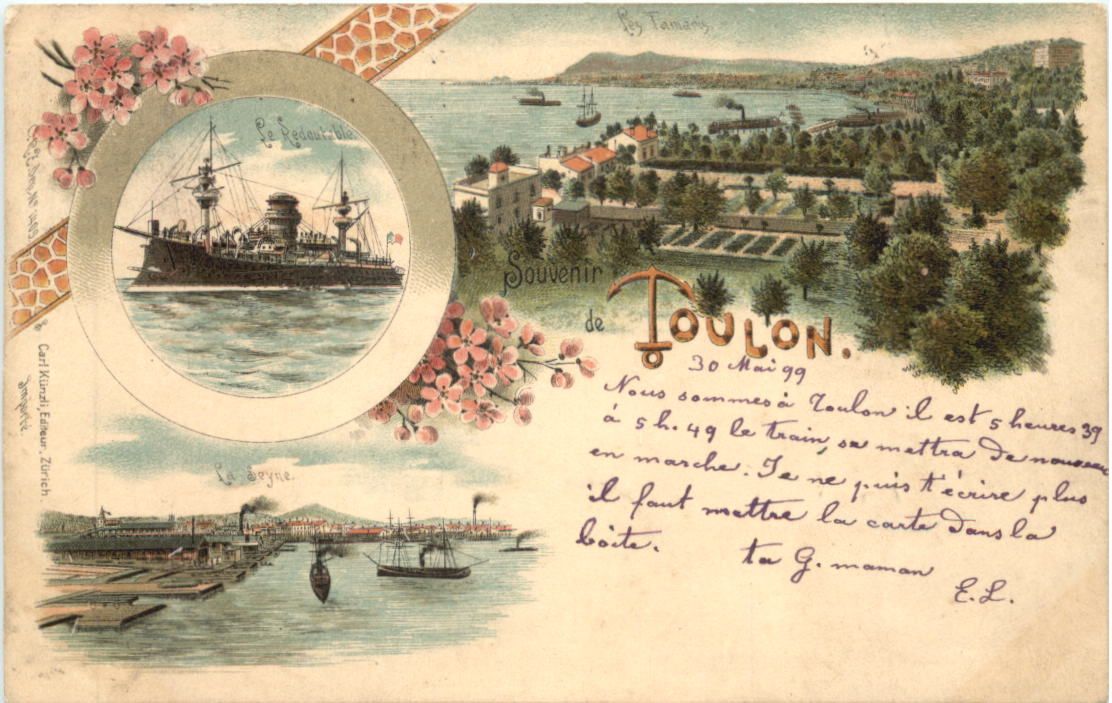 Les Tamaris
Le Redoutable.
Souvenir
de
TOULON.
30 Mai 99
Nous sommes à Toulon il est 5 heures 39
à 5 h. 49 le train, se mettra de nouveau
en marche. Je ne puis t'écrire plus
il faut mettre la carte dans la
boîte.
ta G. maman
E. L.
La Seyne.
Carl Künzli, Editeur, Zürich.